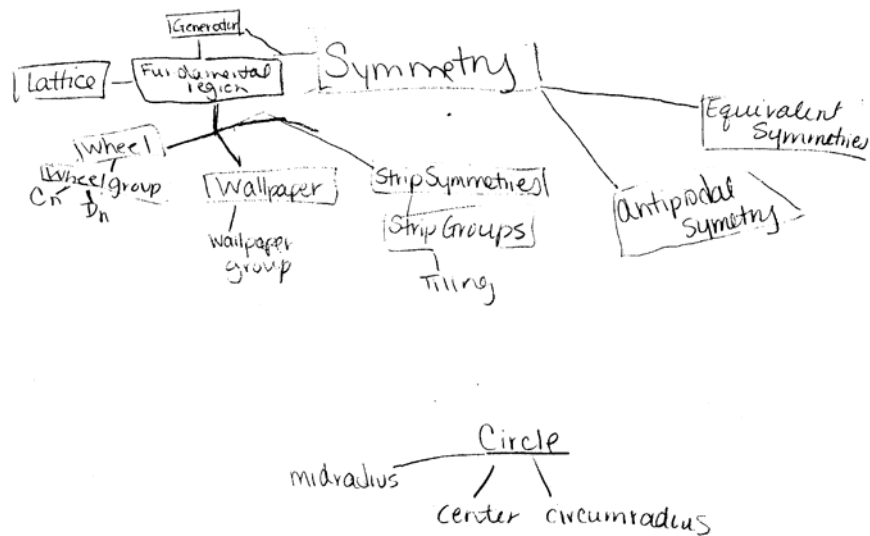 Generator
Symmetry
Lattice
Fundamental
region
Equivalent
Symmetries
Wheel
Wheel group
Cn
Dn
Wallpaper
Wallpaper
group
Strip Symmetries
Strip Groups
Tiling
antipodal
Symetry
Circle
midradius
center
circumradius